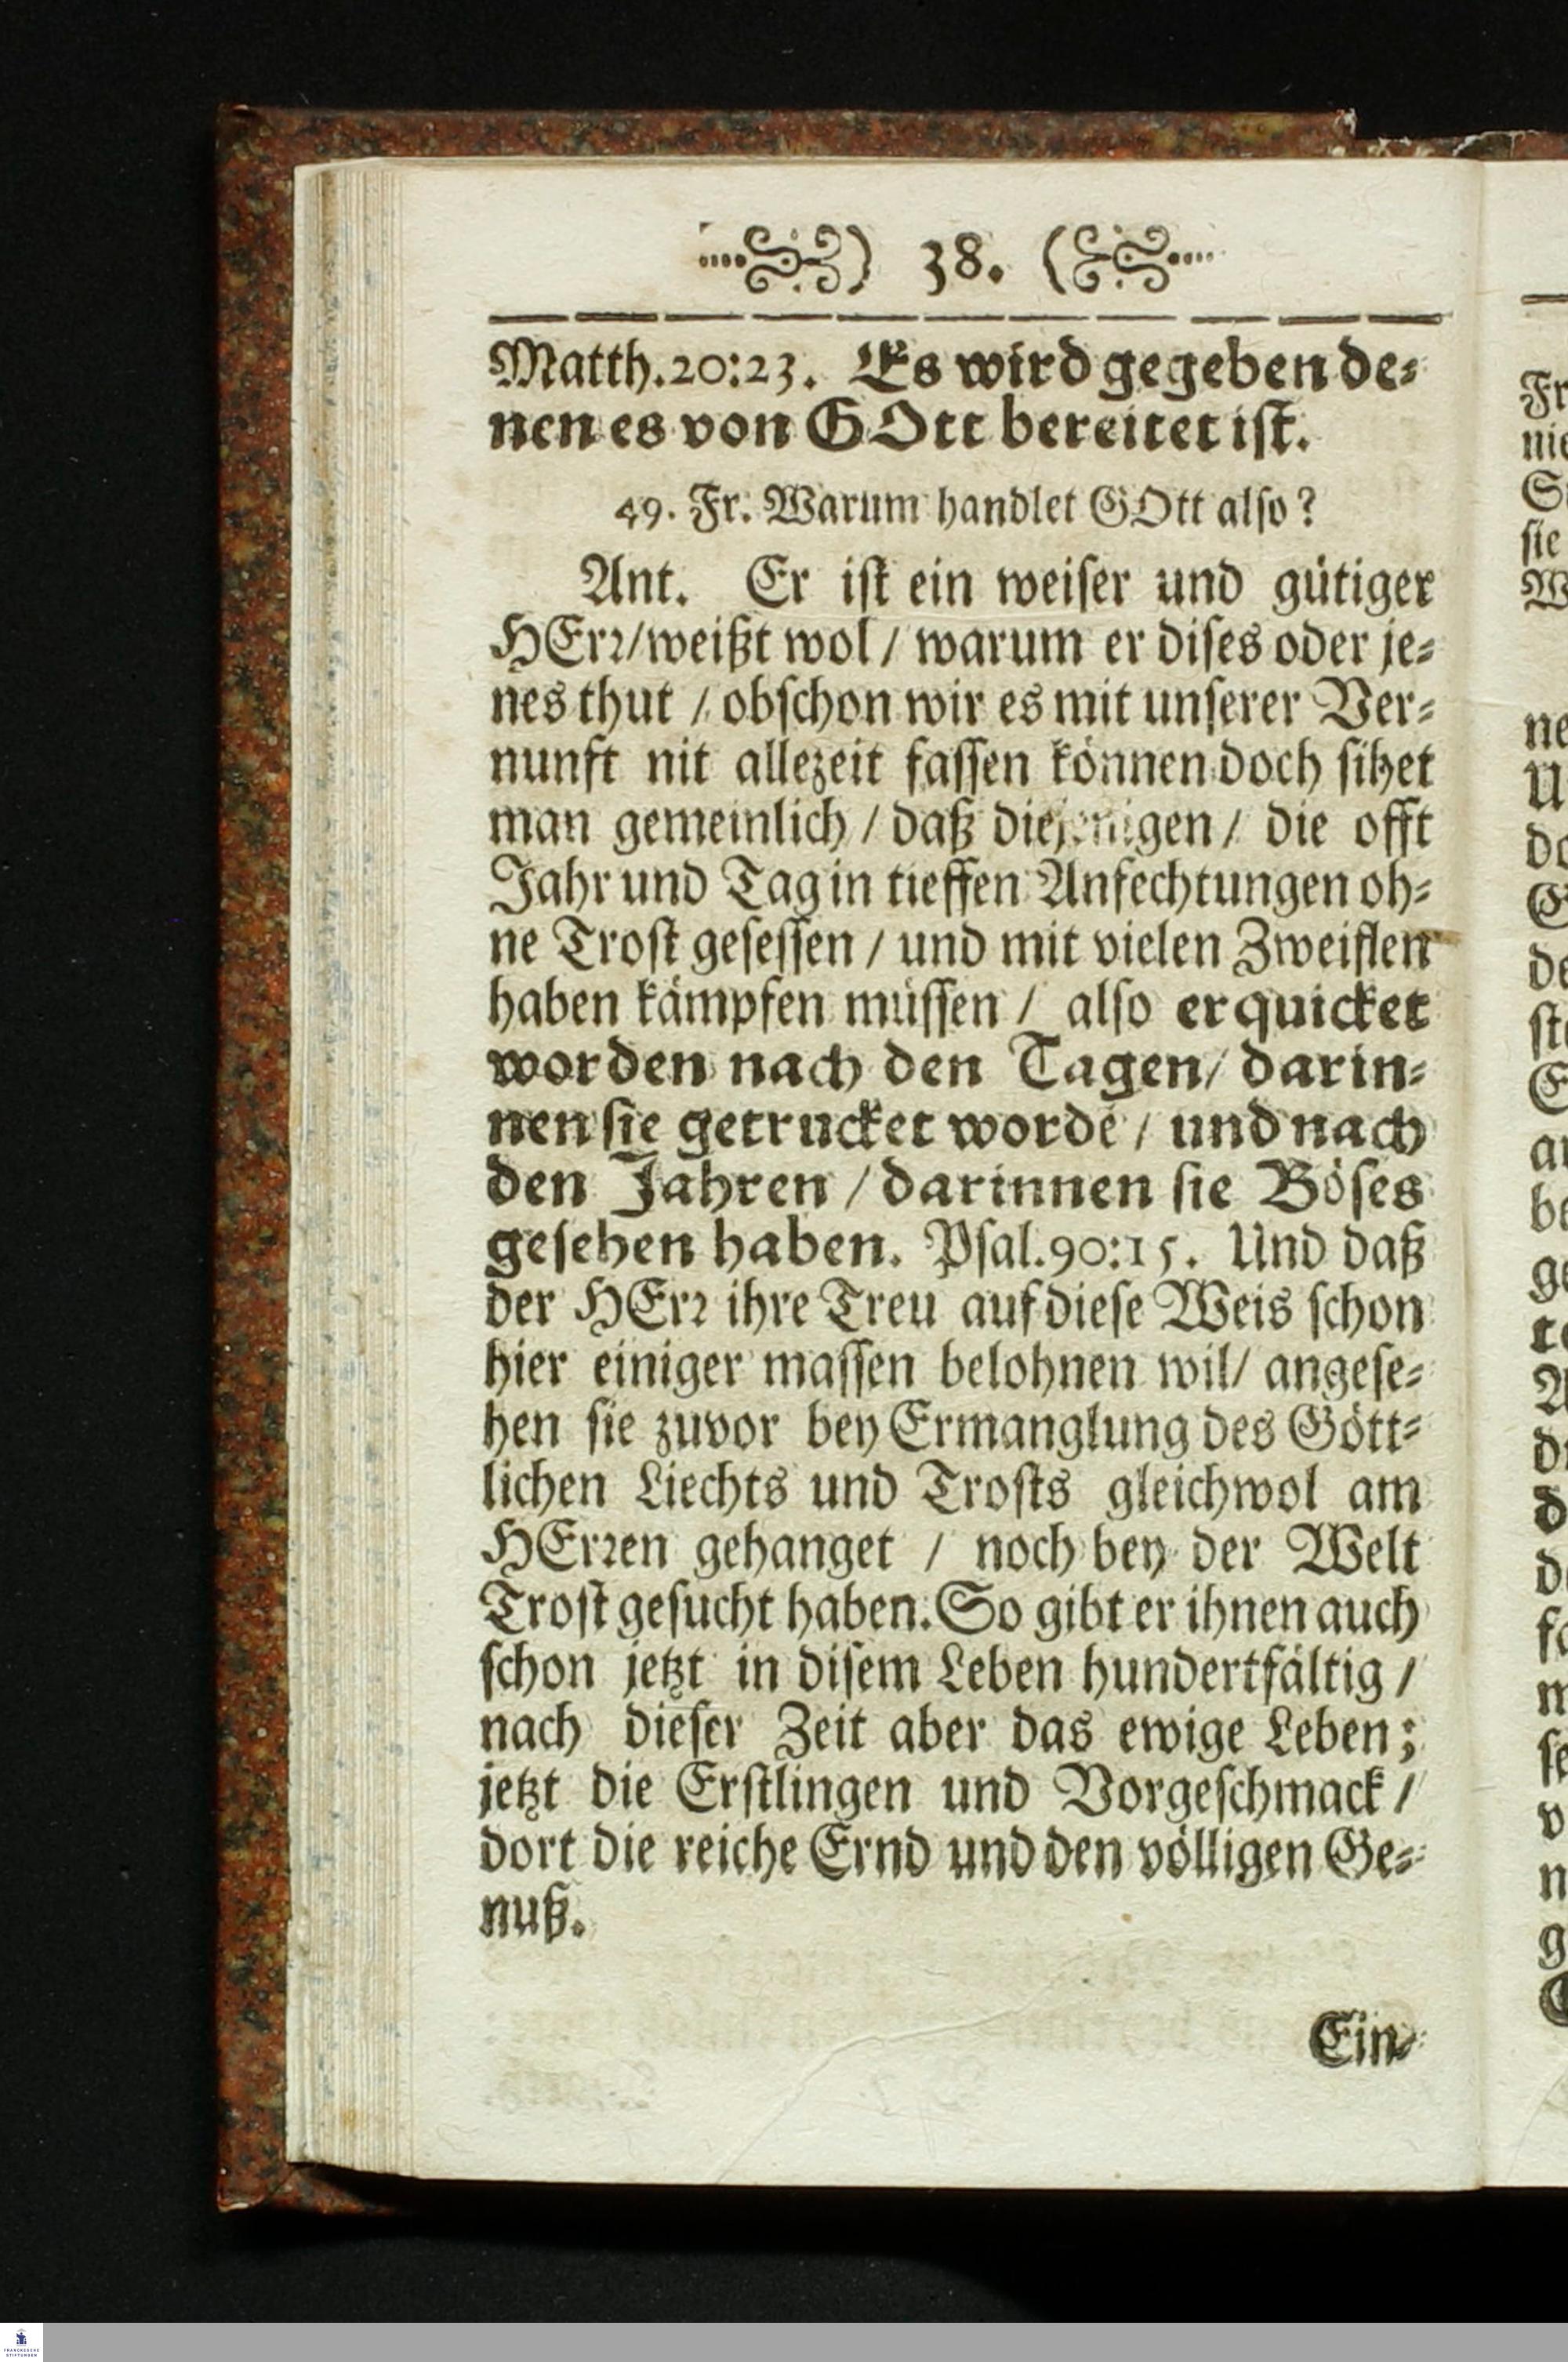 ) 38. (
Matth. 20:23. Es wird gegeben de⸗
nen es von GOtt bereitet ist.
49. Fr. Warum handlet GOtt also?
Ant. Er ist ein weiser und gütiger
HErꝛ/weißt wol / warum er dises oder je⸗
nes thut / obschon wir es mit unserer Ver⸗
nunft nit allezeit fassen können doch sihet
man gemeinlich / daß diejenigen / die offt
Jahr und Tag in tieffen Anfechtungen oh⸗
ne Trost gesessen / und mit vielen Zweiflen
haben kämpfen müssen / also erquicket
worden nach den Tagen/ darin⸗
nen sie getrucket wordē / und nach
den Jahren / darinnen sie Böses
gesehen haben. Psal. 90:15. Und daß
der HErꝛ ihre Treu auf diese Weis schon
hier einiger massen belohnen wil/ angese⸗
hen sie zuvor bey Ermanglung des Gött⸗
lichen Liechts und Trosts gleichwol am
HErꝛen gehanget / noch bey der Welt
Trost gesucht haben. So gibt er ihnen auch
schon jetzt in disem Leben hundertfältig /
nach dieser Zeit aber das ewige Leben;
jetzt die Erstlingen und Vorgeschmack /
dort die reiche Ernd und den völligen Ge⸗
nuß.
Ein⸗
FRANCKESCHE
STIFTUNGEN